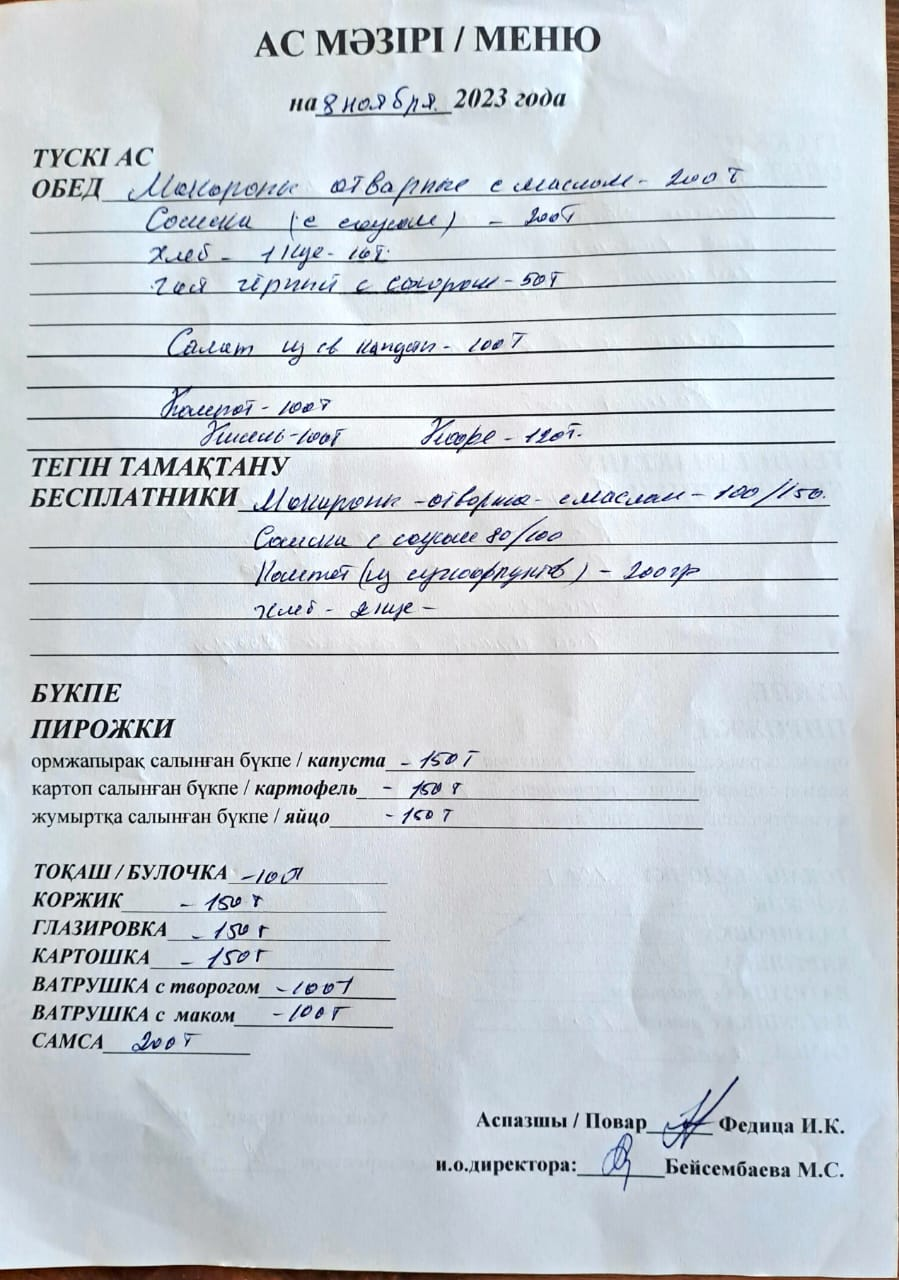 АС МӘЗІРІ / МЕНЮ
на 8 ноября 2023 года
ТҮСКІ АС
ОБЕД Макароны отварные с маслом - 200 т
Сосиски (с соусом) - 200т
Хлеб - 1 кус - 10т.
Чай чёрный с сахаром - 50т
Салат из св капусты - 100т
Компот - 100т
Кисель - 100т
ТЕГІН ТАМАҚТАНУ
БЕСПЛАТНИКИ Макароны - отварные - с маслом - 100/150.
Сосиски с соусом 80/100
Компот (из сухофруктов) - 200гр
Хлеб - 2 кус -
БҮКПЕ
ПИРОЖКИ
ормжапырақ салынған бүкпе / капуста - 150 т
картоп салынған бүкпе / картофель - 150 т
жумыртқа салынған бүкпе / яйцо - 150 т
ТОҚАШ / БУЛОЧКА
КОРЖИК - 150 т
ГЛАЗИРОВКА - 150 т
КАРТОШКА - 150 т
ВАТРУШКА с творогом - 100т
ВАТРУШКА с маком - 100 т
САМСА 200 т
Аспазшы / Повар Федица И.К.
и.о.директора: Бейсембаева М.С.